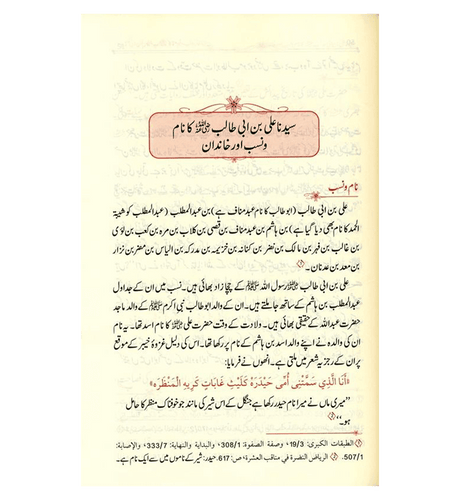 سیدنا علی بن ابی طالب رضی اللہ عنہ کا نام
و نسب اور خاندان
نام و نسب
علی بن ابی طالب (ابو طالب کا نام عبد مناف ہے) بن عبدالمطلب (عبدالمطلب کو شیبۃ
الحمد کا نام بھی دیا گیا ہے) بن ہاشم بن عبد مناف بن قصی بن کلاب بن مرہ بن کعب بن لؤی
بن غالب بن فہر بن مالک بن نضر بن کنانہ بن خزیمہ بن مدرکہ بن الیاس بن مضر بن نزار
بن معد بن عدنان۔
علی بن ابی طالب رضی اللہ عنہ رسول اللہ ﷺ کے چچا زاد بھائی ہیں۔ نسب میں ان کے جد اول
عبدالمطلب بن ہاشم کے ساتھ جا ملتے ہیں۔ ان کے والد ابو طالب نبی اکرم ﷺ کے والد ماجد
حضرت عبداللہ کے حقیقی بھائی ہیں۔ ولادت کے وقت حضرت علی رضی اللہ عنہ کا نام اسد تھا۔ یہ نام
ان کی والدہ نے اپنے والد اسد بن ہاشم کے نام پر رکھا تھا۔ اس کی دلیل غزوۂ خیبر کے موقع
پر ان کے رجزیہ شعر میں ملتی ہے۔ انھوں نے فرمایا:
«أَنَا الَّذِي سَمَّتْنِي أُمِّي حَيْدَرَهْ كَلَيْثِ غَابَاتٍ كَرِيهِ الْمَنْظَرَهْ»
”میری ماں نے میرا نام حیدر رکھا ہے جنگل کے اس شیر کی مانند جو خوفناک منظر کا حامل
ہو۔“
الطبقات الكبرى: 19/3، وصفة الصفوة: 308/1، والبداية والنهاية: 333/7، والإصابة:
507/1. الرياض النضرة في مناقب العشرة، ص: 617. حیدر: شیر کے ناموں میں سے ایک نام ہے۔